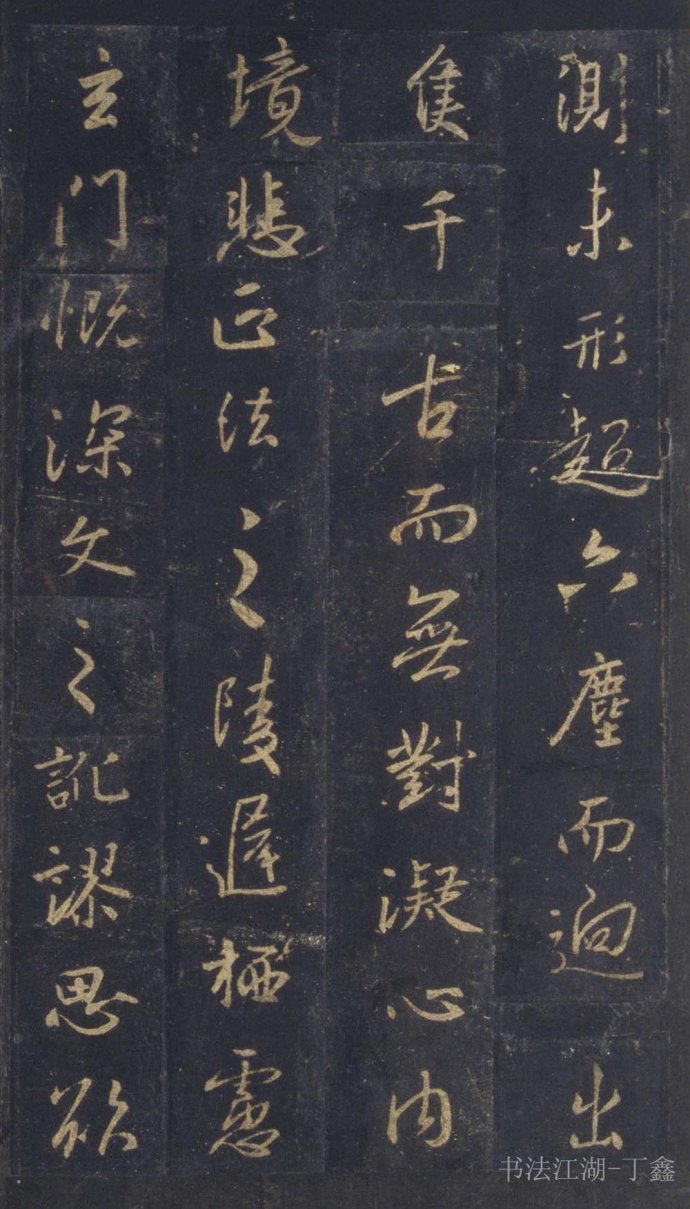 測未形超六塵而迥出
隻千古而無對凝心內
境悲正法之陵遲栖慮
玄門慨深文之訛謬思欲
书法江湖-丁鑫